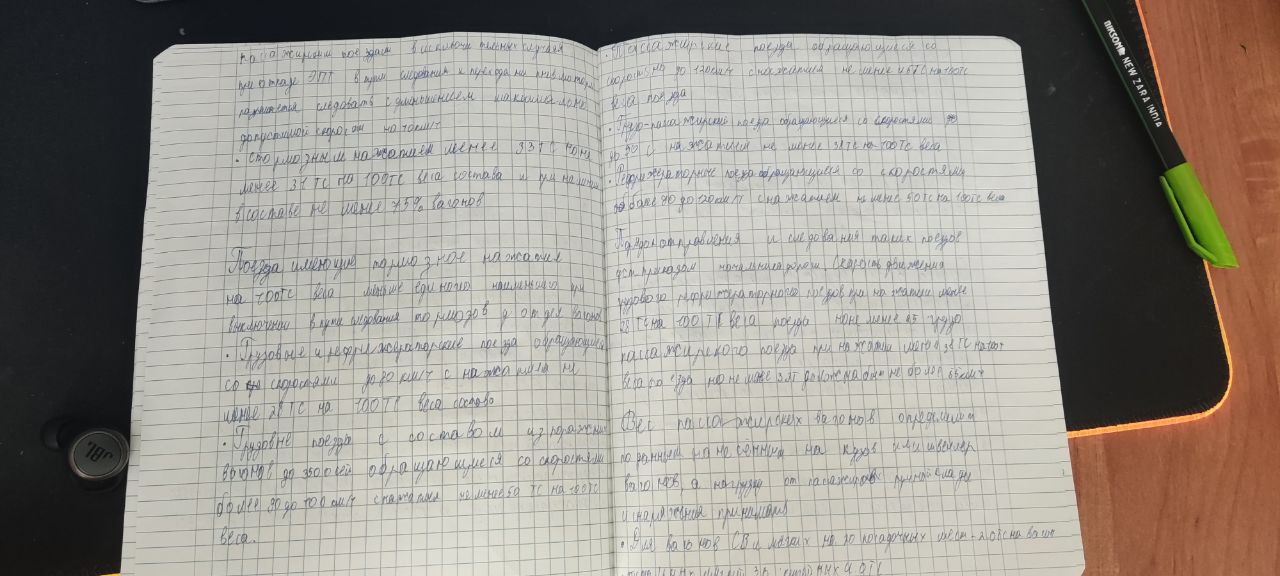 пассажирским поездам в исключительных случаях
при отказе ЭПТ в пути следования и перехода на пневматич
следовать с уменьшением максимально
допустимой скорости на 10 км/ч
• С тормозным нажатием менее 33 ТС но не
менее 31 ТС на 100 ТС веса состава и при наличии
в составе не менее 75% вагонов
Поезда имеющие тормозное нажатие
на 100 ТС веса меньше единого наименьшего при
выключении в пути следования тормозов у отдел вагонов
• Грузовые и рефрижераторские поезда обращающиеся
со скоростями до 80 км/ч с нажатием не
менее 28 ТС на 100 ТС веса состава
• Грузовые поезда с составом из порожних
вагонов до 350 осей обращающиеся со скоростями
более 90 до 100 км/ч с нажатием не менее 50 ТС на 100 ТС
веса.
• Пассажирские поезда обращающиеся со
скорость на до 120 км/ч с нажатием не менее ТС на 100 ТС
веса поезда
• Грузо-пассажирский поезда обращающиеся со скоростями
до 90 с нажатием не менее ТС на 100 ТС веса
• Рефрижераторные поезда обращающиеся со скоростями
более 90 до 120 км/ч с нажатием не менее 50 ТС на 100 ТС веса
Порядок отправления и следования таких поездов
уст приказом начальника дороги. Скорость движения
грузового рефрижераторного поездов при нажатии менее
28 ТС на 100 ТС веса поезда но не менее 25 грузо
пассажирского поезда при нажатии менее ТС на 100 т
веса поезда но не менее должна быть не более км/ч
Вес пассажирских вагонов определяют
по данным нанесённым на кузов или швеллер
вагонов, а нагрузку от пассажиров ручной клади
и снаряжения принимают
• Для вагонов СВ и мягких на 20 посадочных мест - 2.0 ТС на вагон
JBL
NIKSOM
NEW ZARA INDIA